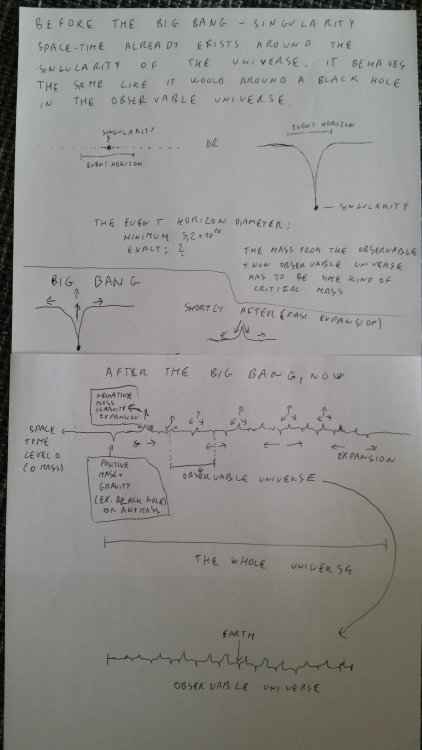 BEFORE THE BIG BANG - SINGULARITY
SPACE-TIME ALREADY EXISTS AROUND THE
SINGULARITY OF THE UNIVERSE. IT BEHAVES
THE SAME LIKE IT WOULD AROUND A BLACK HOLE
IN THE OBSERVABLE UNIVERSE.
SINGULARITY
EVENT HORIZON
OR
EVENT HORIZON
SINGULARITY
THE EVENT HORIZON DIAMETER:
MINIMUM
EXACT: ?
THE MASS FROM THE OBSERVABLE
+ NON OBSERVABLE UNIVERSE
HAS TO BE SOME KIND OF
CRITICAL MASS
BIG BANG
SHORTLY AFTER (FAST EXPANSION)
AFTER THE BIG BANG, NOW
NEGATIVE
MASS
+GRAVITY
EXPANSION
SPACE
TIME
LEVEL 0
(0 MASS)
POSITIVE
MASS+
GRAVITY
(EX. BLACK HOLE)
OR ANY MASS
OBSERVABLE UNIVERSE
EXPANSION
THE WHOLE UNIVERSE
EARTH
OBSERVABLE UNIVERSE